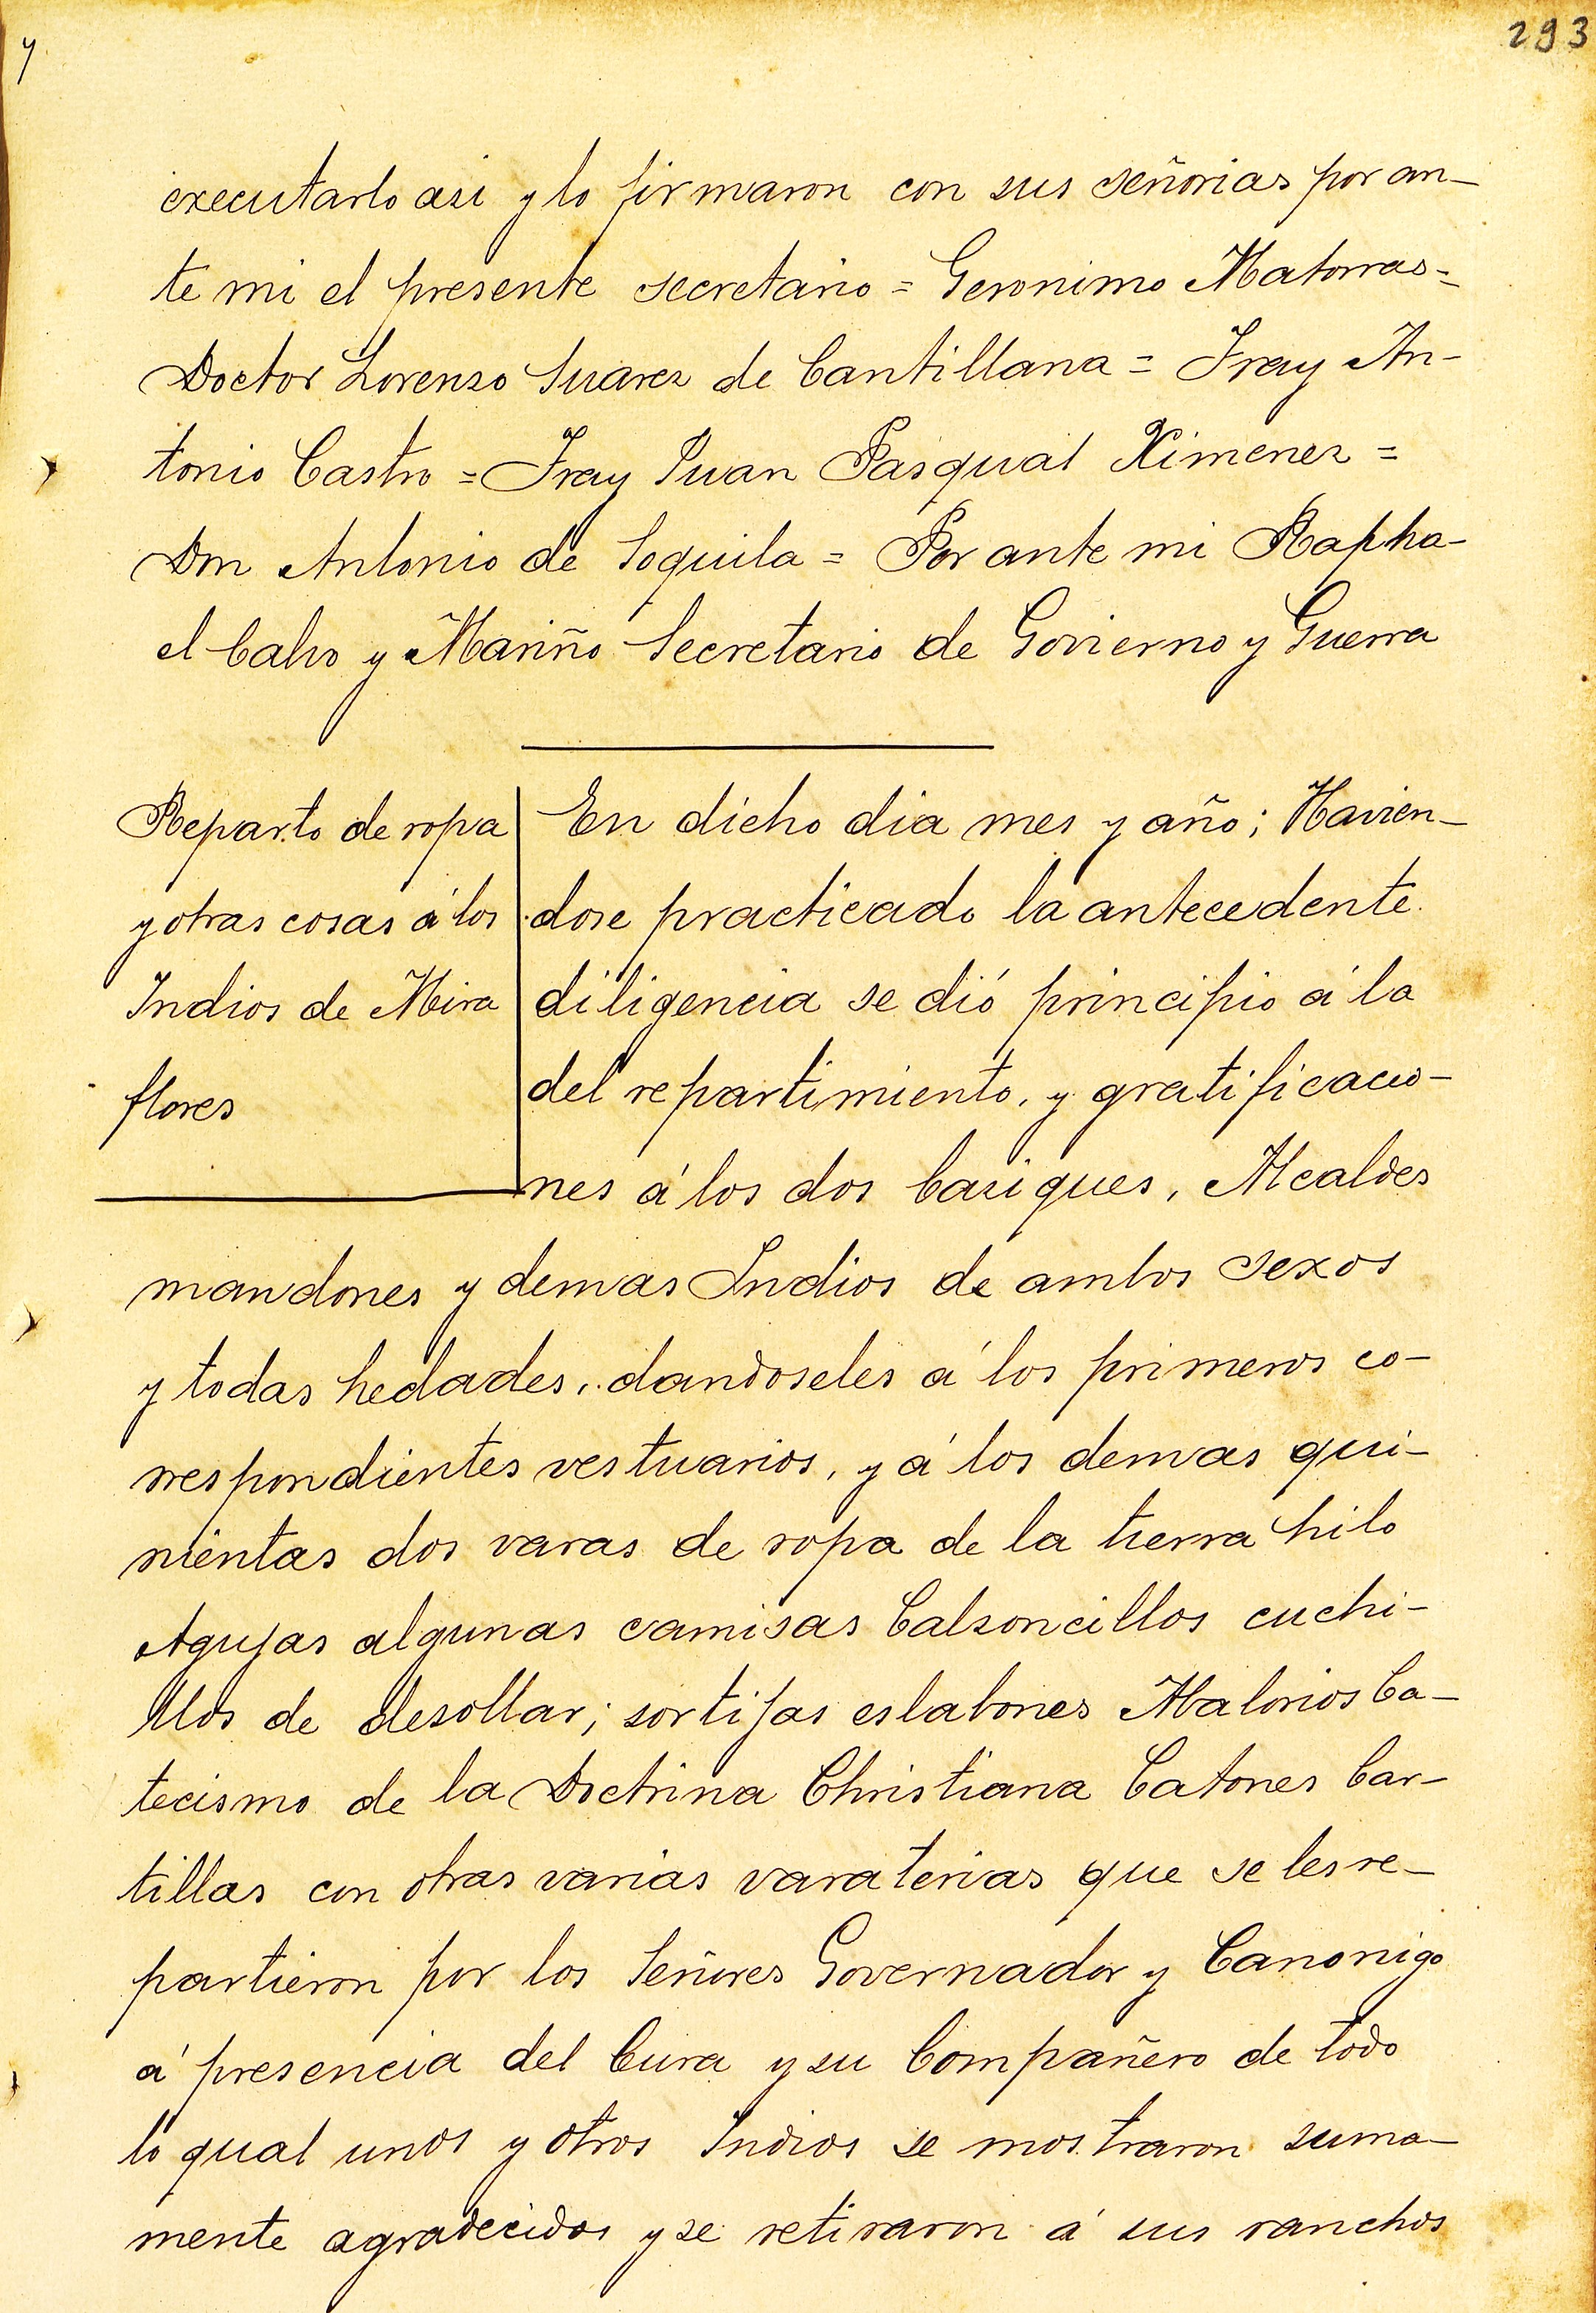 y
293
executarlo asi y lo firmaron con sus señorias por an-
te mi el presente secretario = Geronimo Matorras =
Doctor Lorenzo Suarez de Cantillana = Fray An-
tonio Castro = Fray Juan Pasqual Ximenez =
Don Antonio de Soquila = Por ante mi Rapha-
el Calvo y Mariño Secretario de Govierno y Guerra
Reparto de ropa
y otras cosas á los
Indios de Mira
flores
En dicho dia mes y año; Havien-
dose practicado la antecedente
diligencia se dió principio á la
del repartimiento, y gratificacio-
nes á los dos Casiques, Alcaldes
mandones y demas Indios de ambos sexos
y todas hedades, dandoseles á los primeros co-
rrespondientes vestuarios, y á los demas qui-
nientas dos varas de ropa de la tierra hilo
Agujas algunas camisas Calsoncillos cuchi-
llos de desollar; sortijas eslabones Abalorios Ca-
tecismo de la Doctrina Christiana Catones Car-
tillas con otras varias varaterias que se les re-
partieron por los Señores Governador y Canonigo
á presencia del Cura y su Compañero de todo
lo qual unos y otros Indios se mostraron suma-
mente agradecidos y se retiraron á sus ranchos